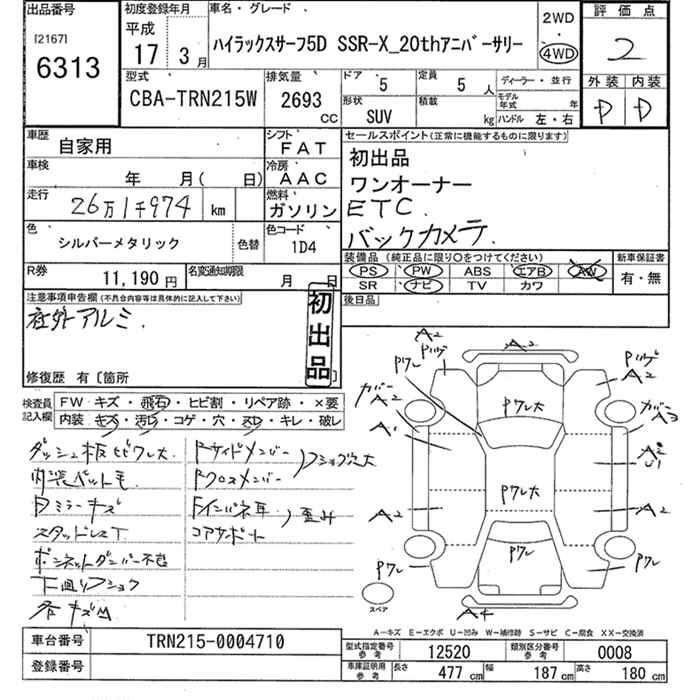 出品番号
[2167]
6313
初度登録年月
平成
17年 3月
車名・グレード
ハイラックスサーフ5D SSR-X_20thアニバーサリー
2WD
・
4WD
評価点
2
型式
CBA-TRN215W
排気量
2693
CC
ドア
5
定員
5人
形状
SUV
積載
kg
ディーラー・並行
モデル年式 年
ハンドル 左・右
外装 内装
D D
車歴
自家用
シフト
FAT
車検
年 月( 日)
冷房
AAC
走行
26万1千974 km
燃料
ガソリン
色
シルバーメタリック
色替
色コード
1D4
R券
11,190円
名変通知期限
月 日
セールスポイント(正常に機能するものに限ります)
初出品
ワンオーナー
ETC.
バックカメラ.
装備品 (純正品に限り〇をつけてください)
PS PW ABS エアB AW
SR ナビ TV カワ
新車保証書
有・無
後日品
注意事項申告欄(不具合内容等は具体的に記入して下さい)
社外アルミ.
初出品
修復歴 有〔箇所 〕
検査員記入欄
FW キズ・飛石・ヒビ割・リペア跡・×要
内装・キズ・汚レ・コゲ・穴・スレ・キレ・破レ
ダッシュ板ヒビワレ大
内装ペット毛
Dミラーキズ
スタッドレスT
ボンネットダンパー不良
下廻りフショク
各キズM
Fサイドメンバー
Fクロスメンバー
フショク大
Fインパネ耳
コアサポート
歪み
A2 A2
Pハゲ Pワレ Pハゲ
A2
Pワレ大
ガバーA2
ガバA3
A1
A2
U1
Pワレ大
A2 A2
Pワレ Pワレ Pワレ
A4
スペア
A-キズ E-エクボ U-凹み W-補修跡 S-サビ C-腐食 XX-交換済
車台番号
TRN215-0004710
登録番号
型式指定番号
参考
12520
類別区分番号
参考
0008
車庫証明用
参考
長さ
477 cm
幅
187 cm
高さ
180 cm